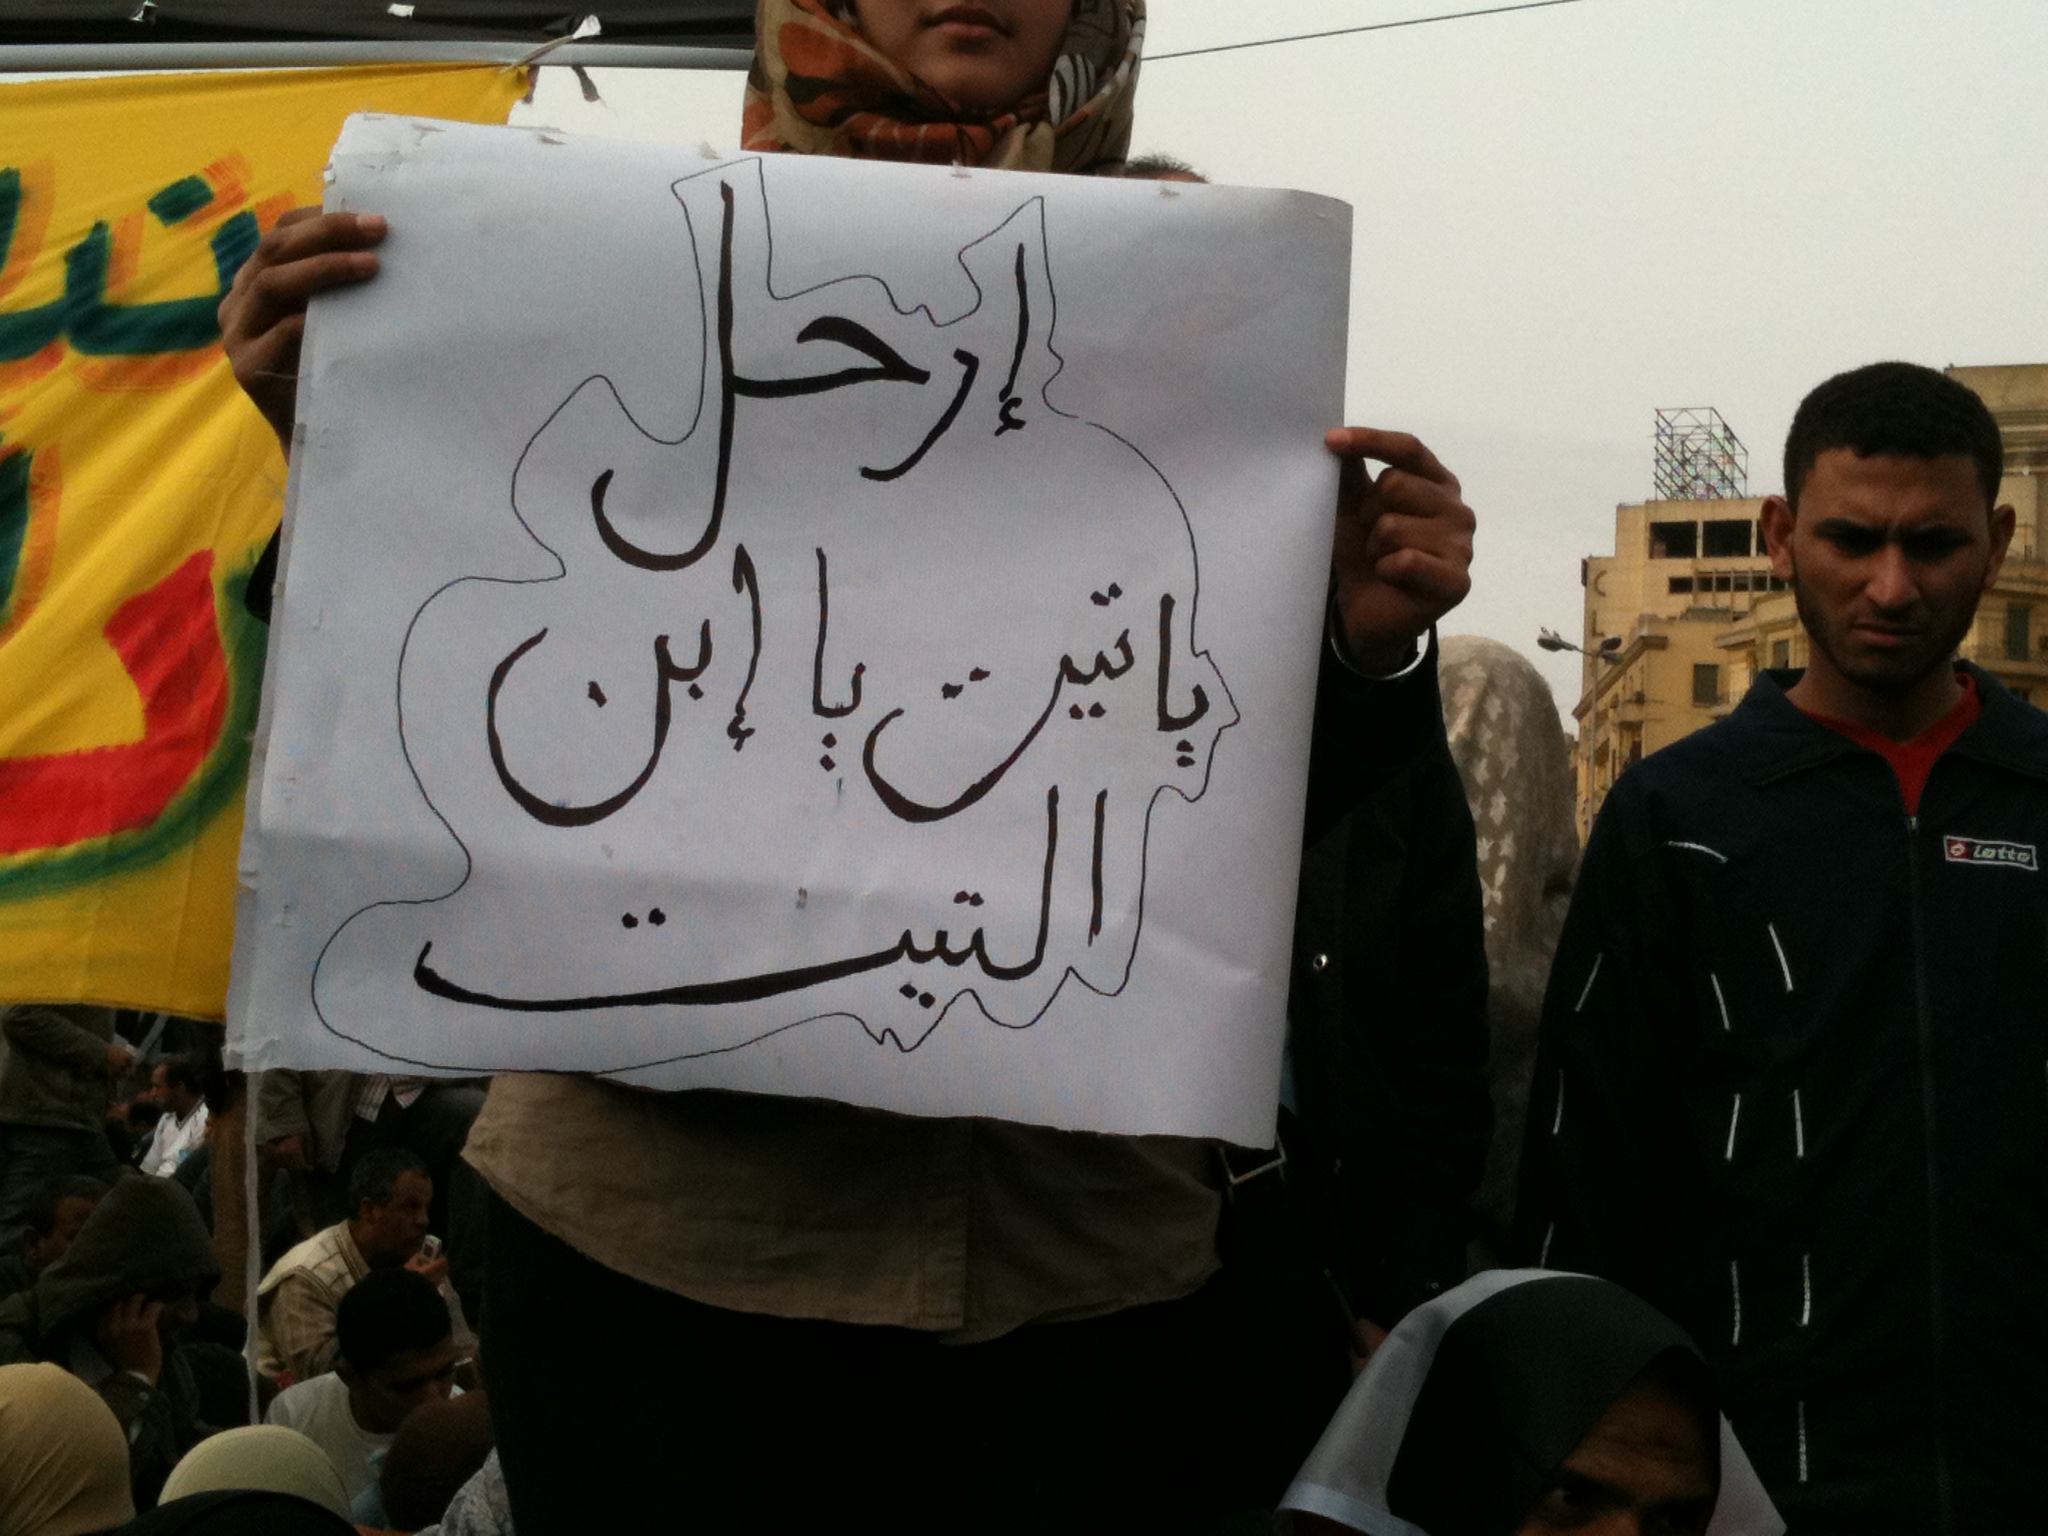 إرحل
ياتيت يا إبن
التيت
Lotto